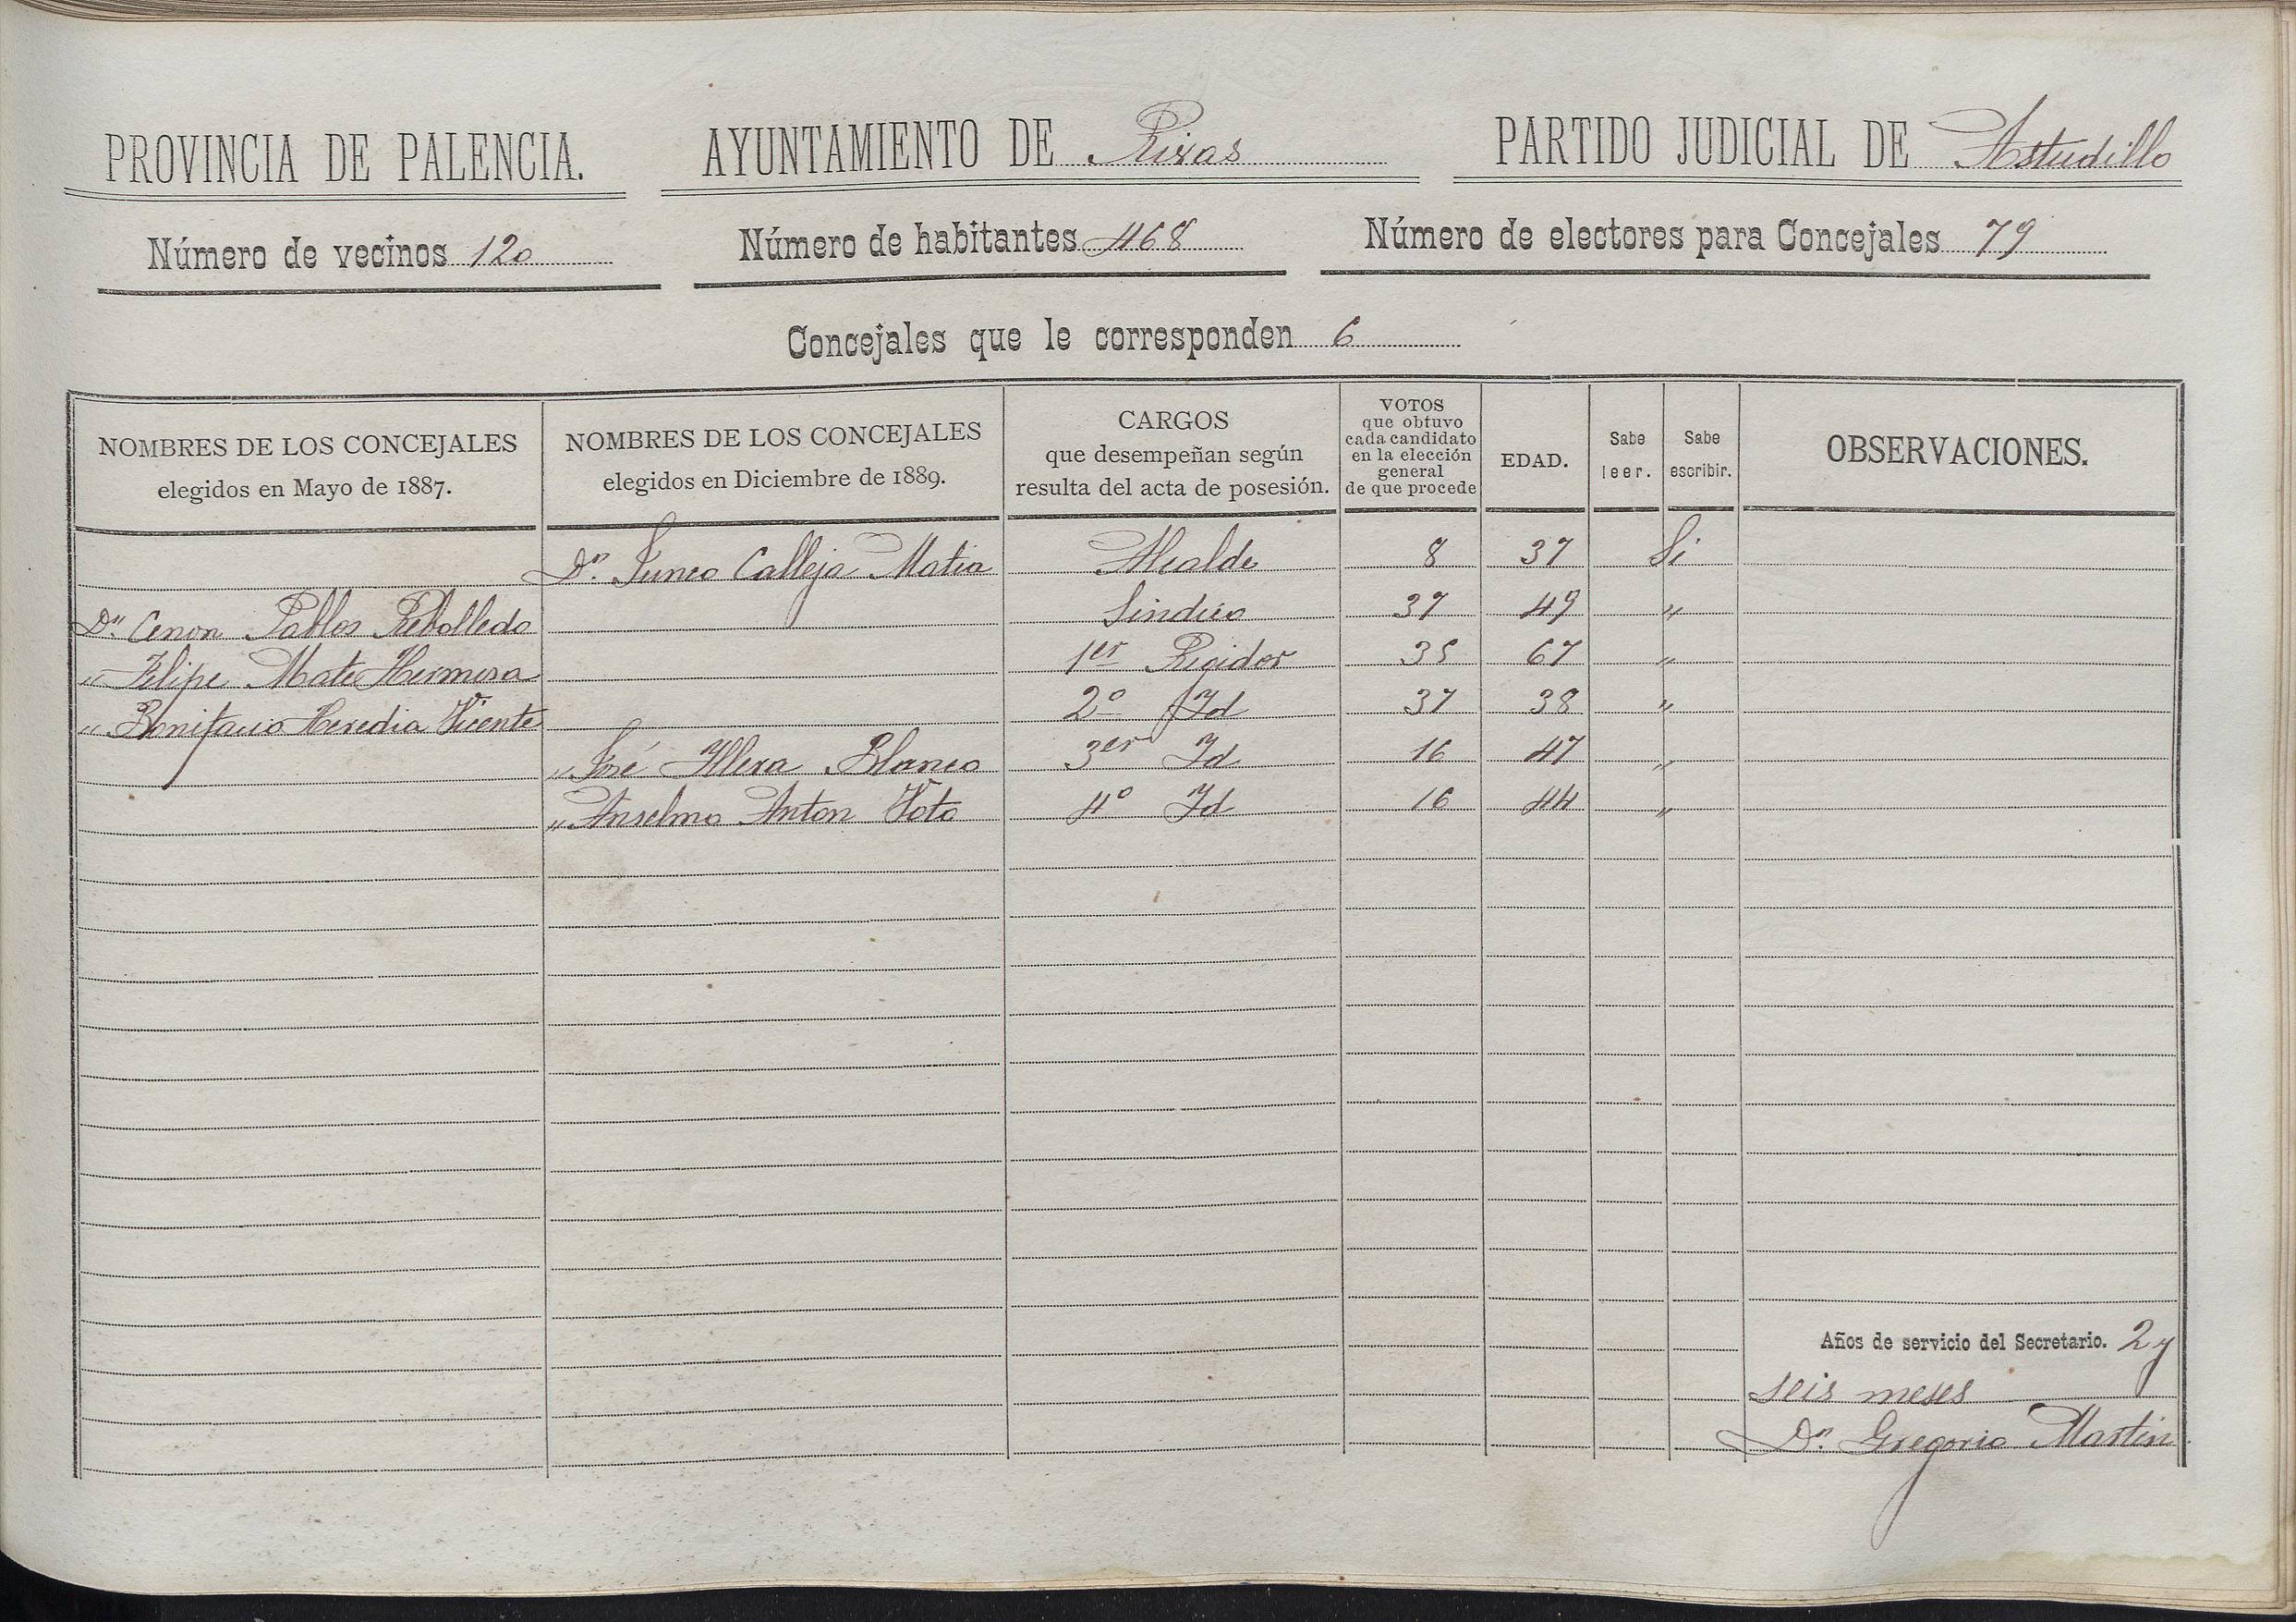 PROVINCIA DE PALENCIA. AYUNTAMIENTO DE Rivas PARTIDO JUDICIAL DE Astudillo
Número de vecinos 120 Número de habitantes 468 Número de electores para Concejales 79
Concejales que le corresponden 6
NOMBRES DE LOS CONCEJALES elegidos en Mayo de 1887. NOMBRES DE LOS CONCEJALES elegidos en Diciembre de 1889. CARGOS que desempeñan según resulta del acta de posesión. VOTOS que obtuvo cada candidato en la elección general de que procede EDAD. Sabe leer. Sabe escribir. OBSERVACIONES.
Dn. Calleja Matia Alcalde 8 37 Si
Dn. Cenon Pablos Rebolledo Sindico 37 49 "
" Felipe Mate Hermosa 1er Regidor 35 67 "
" Bonifacio Heredia Vicente 2º Id 37 38 "
" José Illera Blanco 3er Id 16 47 "
" Anselmo Anton Soto 4º Id 16 44 "
Años de servicio del Secretario. 2 y
seis meses
Dn. Gregorio Martin